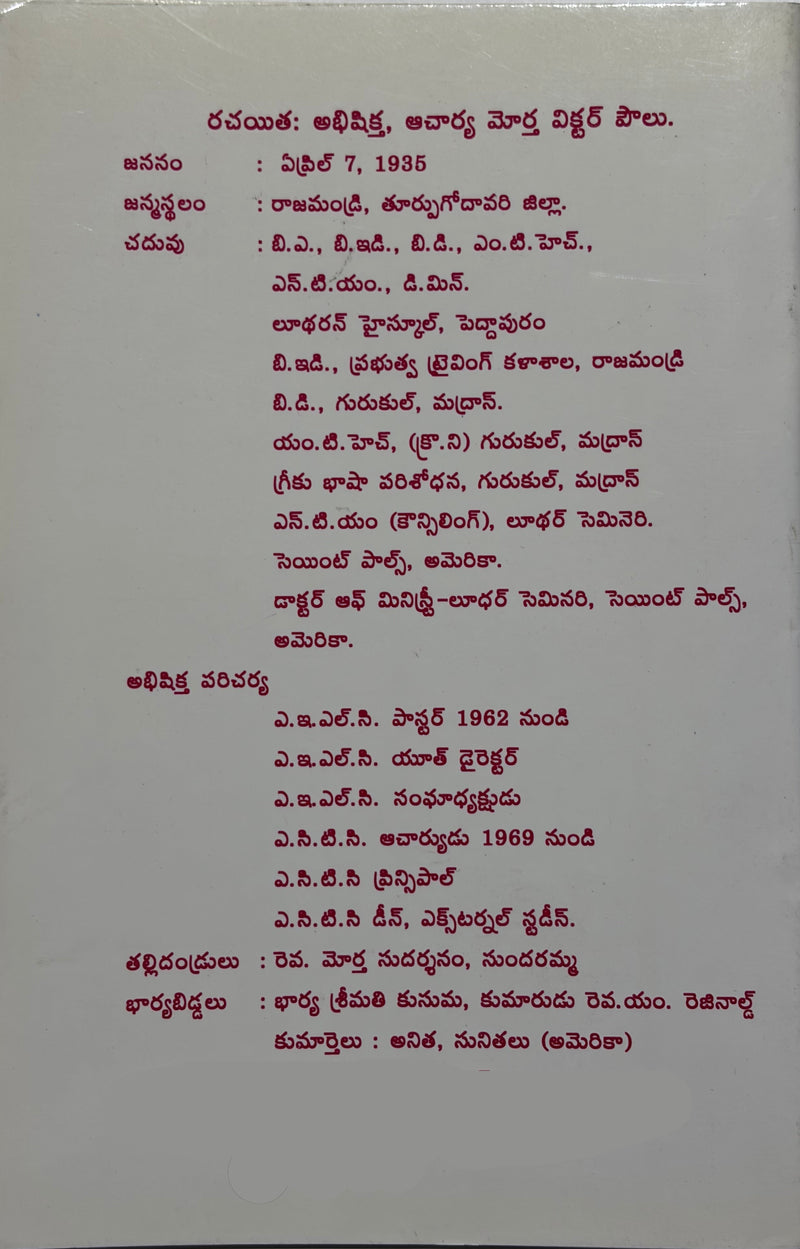 రచయిత: అభిషిక్త, ఆచార్య మోర్త విక్టర్ పౌలు.
జననం : ఏప్రిల్ 7, 1935
జన్మస్థలం : రాజమండ్రి, తూర్పుగోదావరి జిల్లా.
చదువు : బి.ఎ., బి.ఇడి., బి.డి., ఎం.టి.హెచ్.,
ఎస్.టి.యం., డి.మిన్.
లూథరన్ హైస్కూల్, పెద్దాపురం
బి.ఇడి., ప్రభుత్వ ట్రైవింగ్ కళాశాల, రాజమండ్రి
బి.డి., గురుకుల్, మద్రాస్.
యం.టి.హెచ్, (క్రొ.ని) గురుకుల్, మద్రాస్
గ్రీకు భాషా పరిశోధన, గురుకుల్, మద్రాస్
ఎస్.టి.యం (కౌన్సిలింగ్), లూథర్ సెమినెరి.
సెయింట్ పాల్స్, అమెరికా.
డాక్టర్ ఆఫ్ మినిస్ట్రీ-లూధర్ సెమినరి, సెయింట్ పాల్స్,
అమెరికా.
అభిషిక్త పరిచర్య
ఎ.ఇ.ఎల్.సి. పాస్టర్ 1962 నుండి
ఎ.ఇ.ఎల్.సి. యూత్ డైరెక్టర్
ఎ.ఇ.ఎల్.సి. సంఘాధ్యక్షుడు
ఎ.సి.టి.సి. ఆచార్యుడు 1969 నుండి
ఎ.సి.టి.సి ప్రిన్సిపాల్
ఎ.సి.టి.సి డీన్, ఎక్స్‌టర్నల్ స్టడీస్.
తల్లిదండ్రులు : రెవ. మోర్త సుదర్శనం, సుందరమ్మ
భార్యబిడ్డలు : భార్య శ్రీమతి కుసుమ, కుమారుడు రెవ.యం. రెజినాల్డ్
కుమార్తెలు : అనిత, సునితలు (అమెరికా)